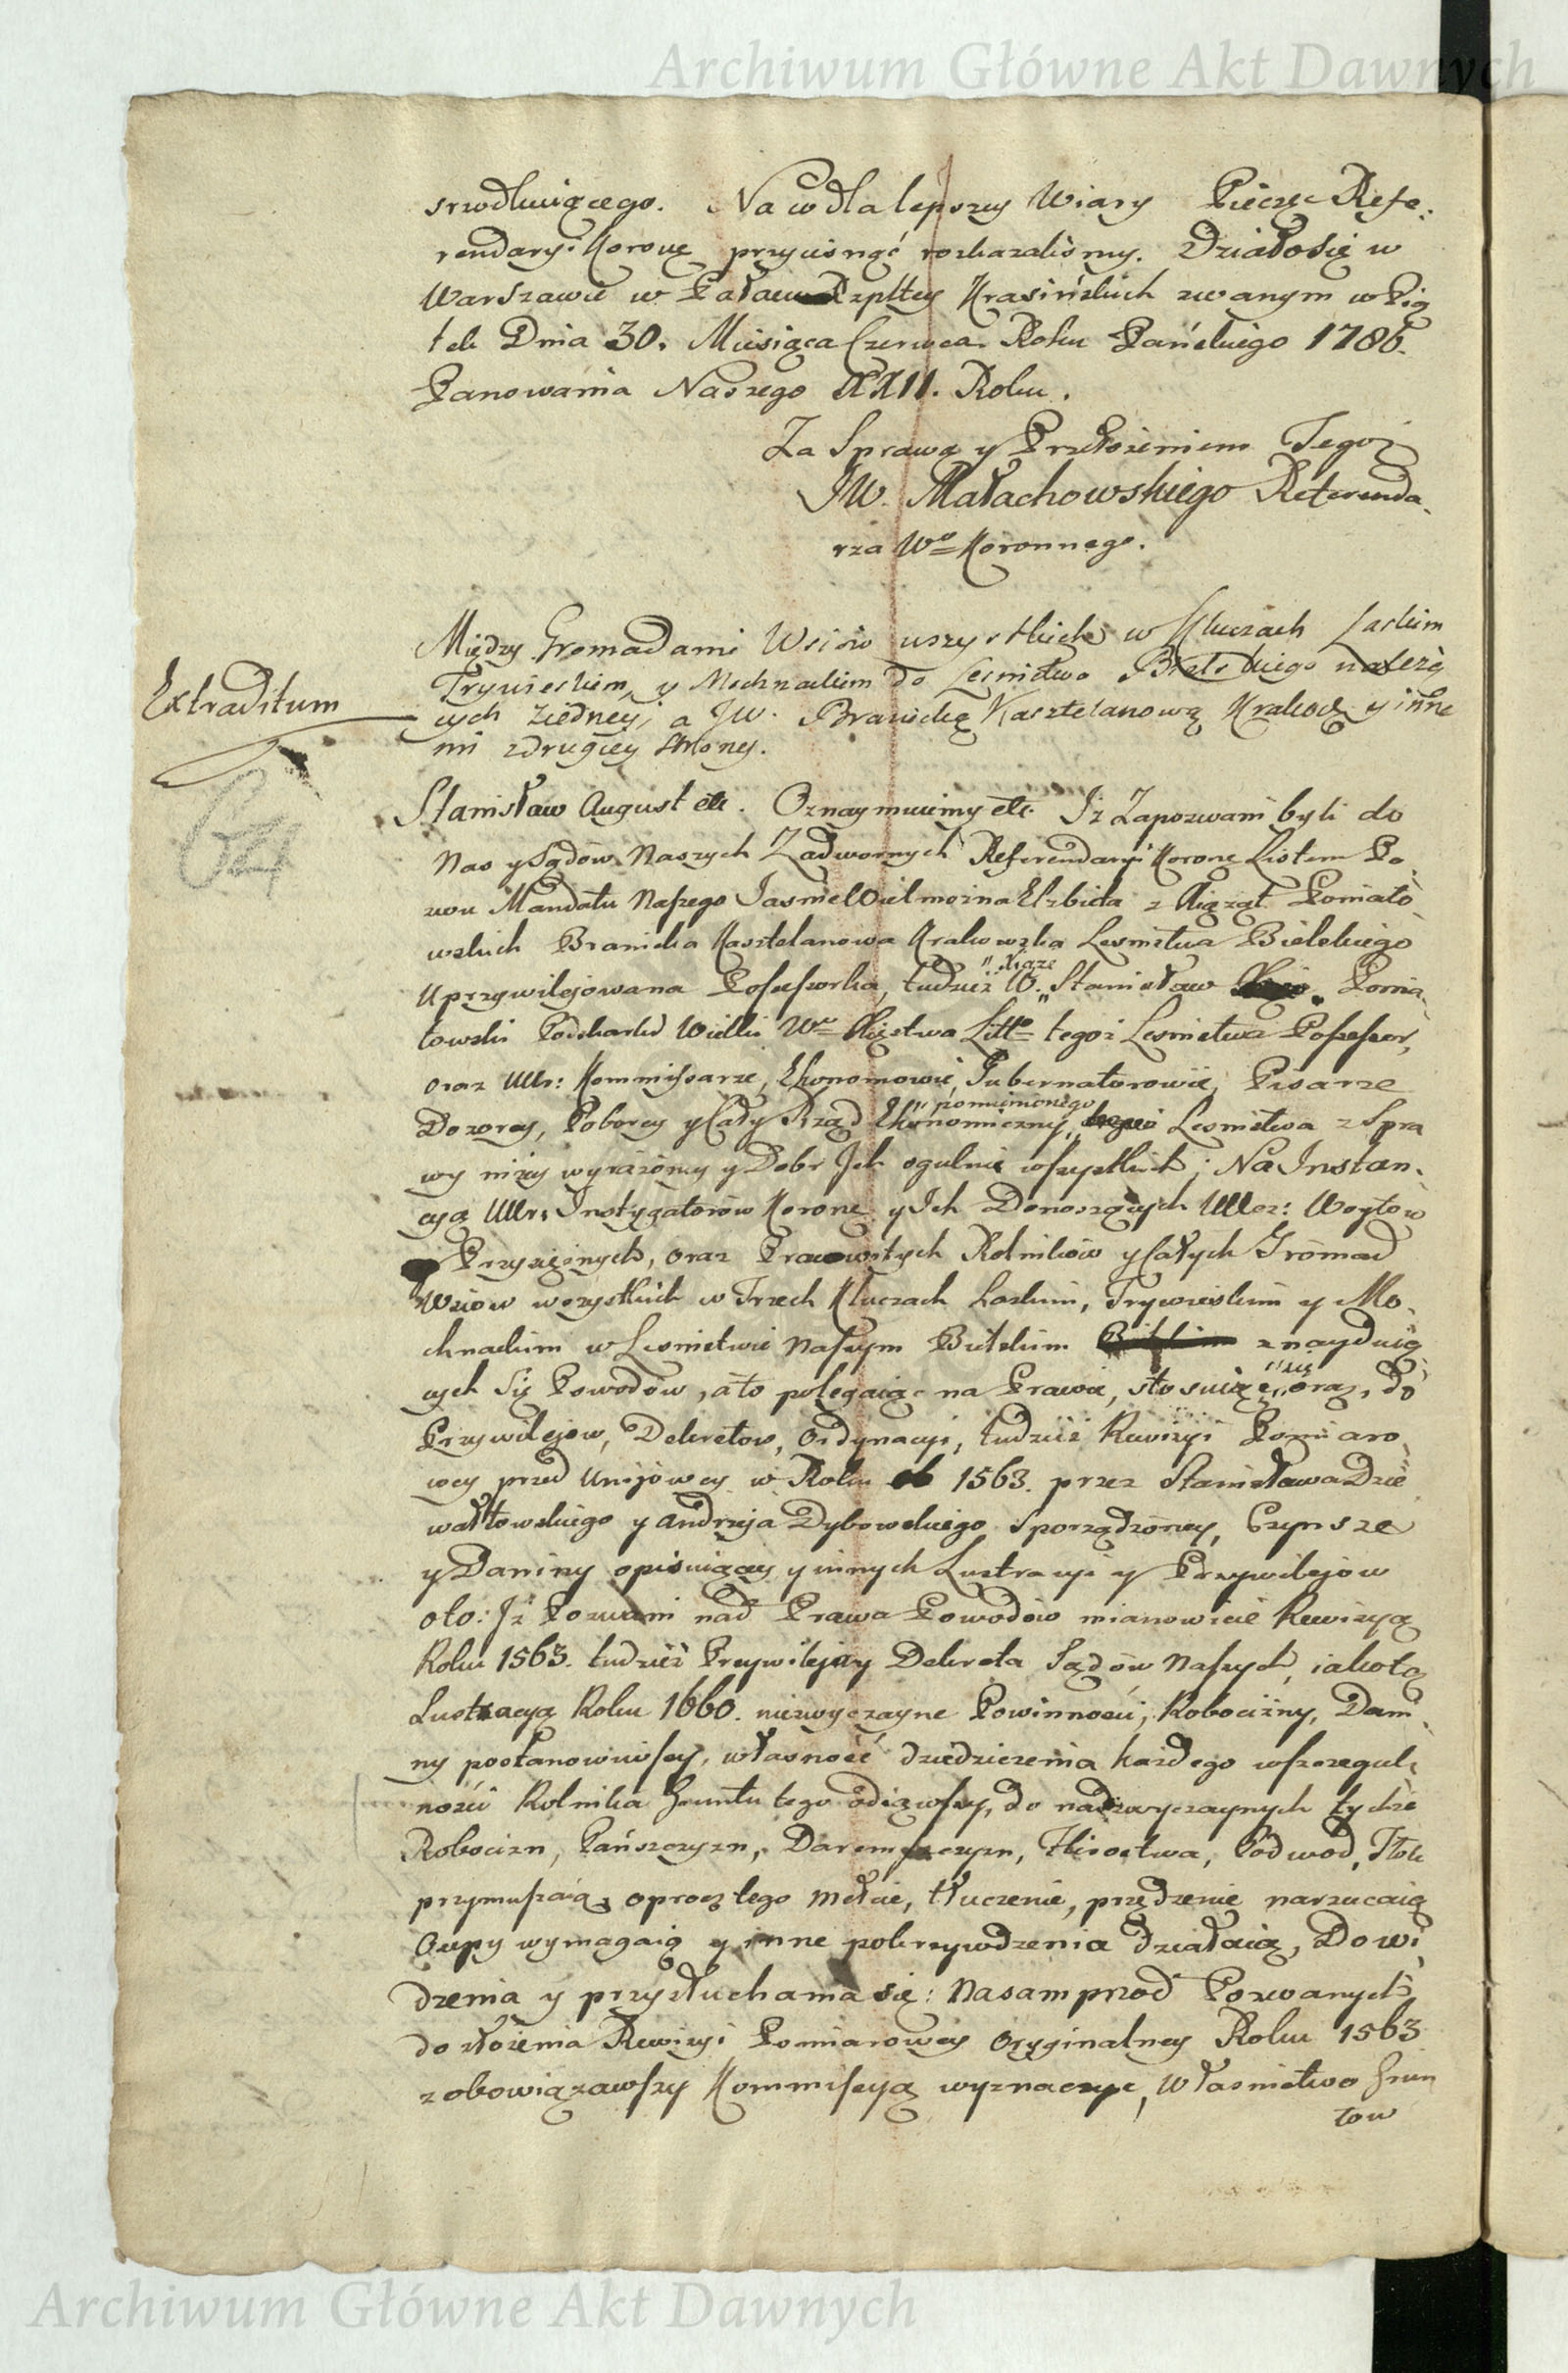 Archiwum Główne Akt Dawnych
srzodkuiącego. Na co dla lepszey Wiary Pieczęc Refe:
rendaryi Koronę przycisnąć rozkazaliśmy. Działosię w
Warszawie w Pałacu Rzpltey Krasińskich zwanym w Pią
tek Dnia 30. Miesiąca Czerwca Roku Pańskiego 1786.
Panowania Naszego XXII. Roku.
Za Sprawą y Przełożeniem Tegoż
JW. Małachowskiego Referenda
rza Wo Koronnego.
Między Gromadami Wsiów wszystkich w Kluczach Łaskim
Trywieskim, y Mochnackim do Lesnictwa Bielskiego należą
Extraditum
cych ziedney, a JW. Branicką Kasztelanową Krakows y inne
mi zdrugiey strony.
64
Stanisław August etc. Oznaymuiemy etc. Iż Zapozwani byli do
Nas y Sądów Naszych Zadwornych Referendaryi Koronę Listem Po
zwu Mandatu Naszego Jasnie Wielmożna Elzbieta z Xiążąt Poniato
wskich Branicka Kasztelanowa Krakowska Lesnictwa Bielskiego
Uprzywilejowana Possessorka, tudzież W. "Xiąże" Stanisław Ponia
towski Podskarbi Wielki Wo Xięstwa Litto tegoż Lesnictwa Possessor,
oraz UUr: Kommissarze, Ekonomowie, Gubernatorowie, Pisarze
Dozorcy, Poborcy y Cały Rząd Ekonomiczny, "pomienionego" tegoż Lesnictwa z Spra
wy niżey wyrażoney y Dobr Jch ogulnie wszystkich; Na Instan
cyą UUr: Instygatorów Koronę y Jch Donoszących UUcz: Woytów
Przysięznych, oraz Pracowitych Rolników y Całych Gromad
Wsiów wszystkich w Trzech Kluczach Łaskim, Trywieskim y Mo
chnackim w Lesnictwie Naszym Bielskim znayduią
cych się Powodów, a to polegaiąc na Prawie, stosuiąc "się" oraz, do
Przywilejow, Dekretow, Ordynacyi, tudzież Rewizyi Pomiaro
wey przed Unijowey w Roku 1563. przez Stanisława Dzie
wałtowskiego y Andrzeja Dybowskiego Sporządzoney, Czynsze
y Daniny opisuiącey y innych Lustracyi y Przywilejow
oto: Iż Pozwani nad Prawa Powodów mianowicie Rewizyą
Roku 1563. tudzież Przywileja y Dekreta Sądów Naszych, iakoteż
Lustracyą Roku 1660. niezwyczayne Powinności, Robocizny, Dani
ny postanowiwszy, własność dziedziczenia każdego wszczegul
ności Rolnika Gruntu tego odiąwszy, do nadzwyczaynych tychże
Robocizn, Pańszczyzn, Daremszczyzn, Stróstwa, Podwod, Tłok
przymuszaią, oprocz tego mełcie, tłuczenie, przędzenie narzucaią
Osepy wymagaią y inne pokrzywdzenia działaią, Do wi
dzenia y przysłuchania się: Nasamprzod Pozwanych
do złożenia Rewizyi Pomiarowey Oryginalney Roku 1563
zobowiązawszy Kommissyą wyznaczyc, Własnictwo Grun
tow
Archiwum Główne Akt Dawnych